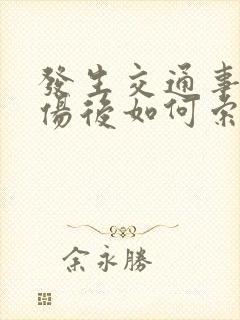 發生交通事
傷後如何索
余永勝